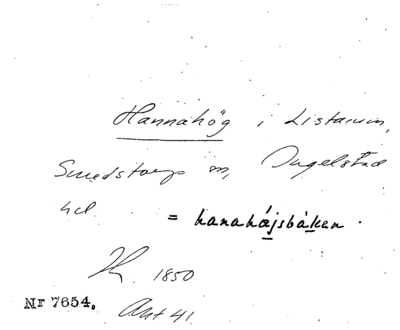 Hannahög i Listarum,
Smedstorps sn, Ingelstad
hd. = hanahájsbákan.
1850
Nr 7654. Akt 41